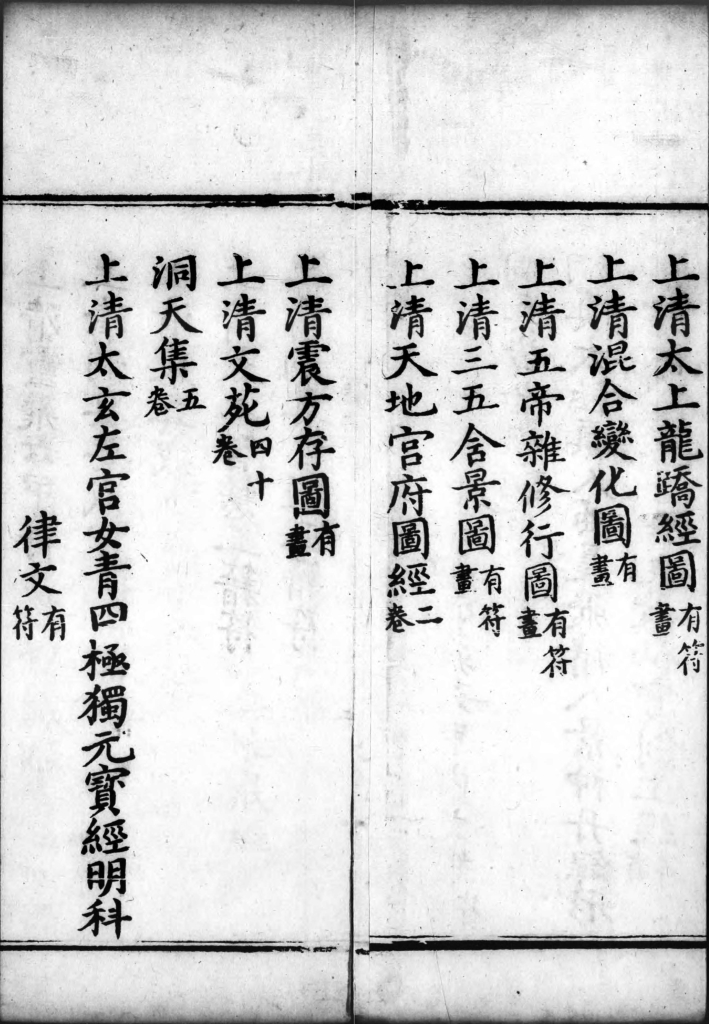 上清太上龍蹻經圖有符畫
上清混合變化圖有畫
上清五帝雜修行圖有符畫
上清三五含景圖有符畫
上清天地宮府圖經二卷
上清震方存圖有畫
上清文苑四十卷
洞天集五卷
上清太玄左官女青四極獨元寶經明科
律文有符